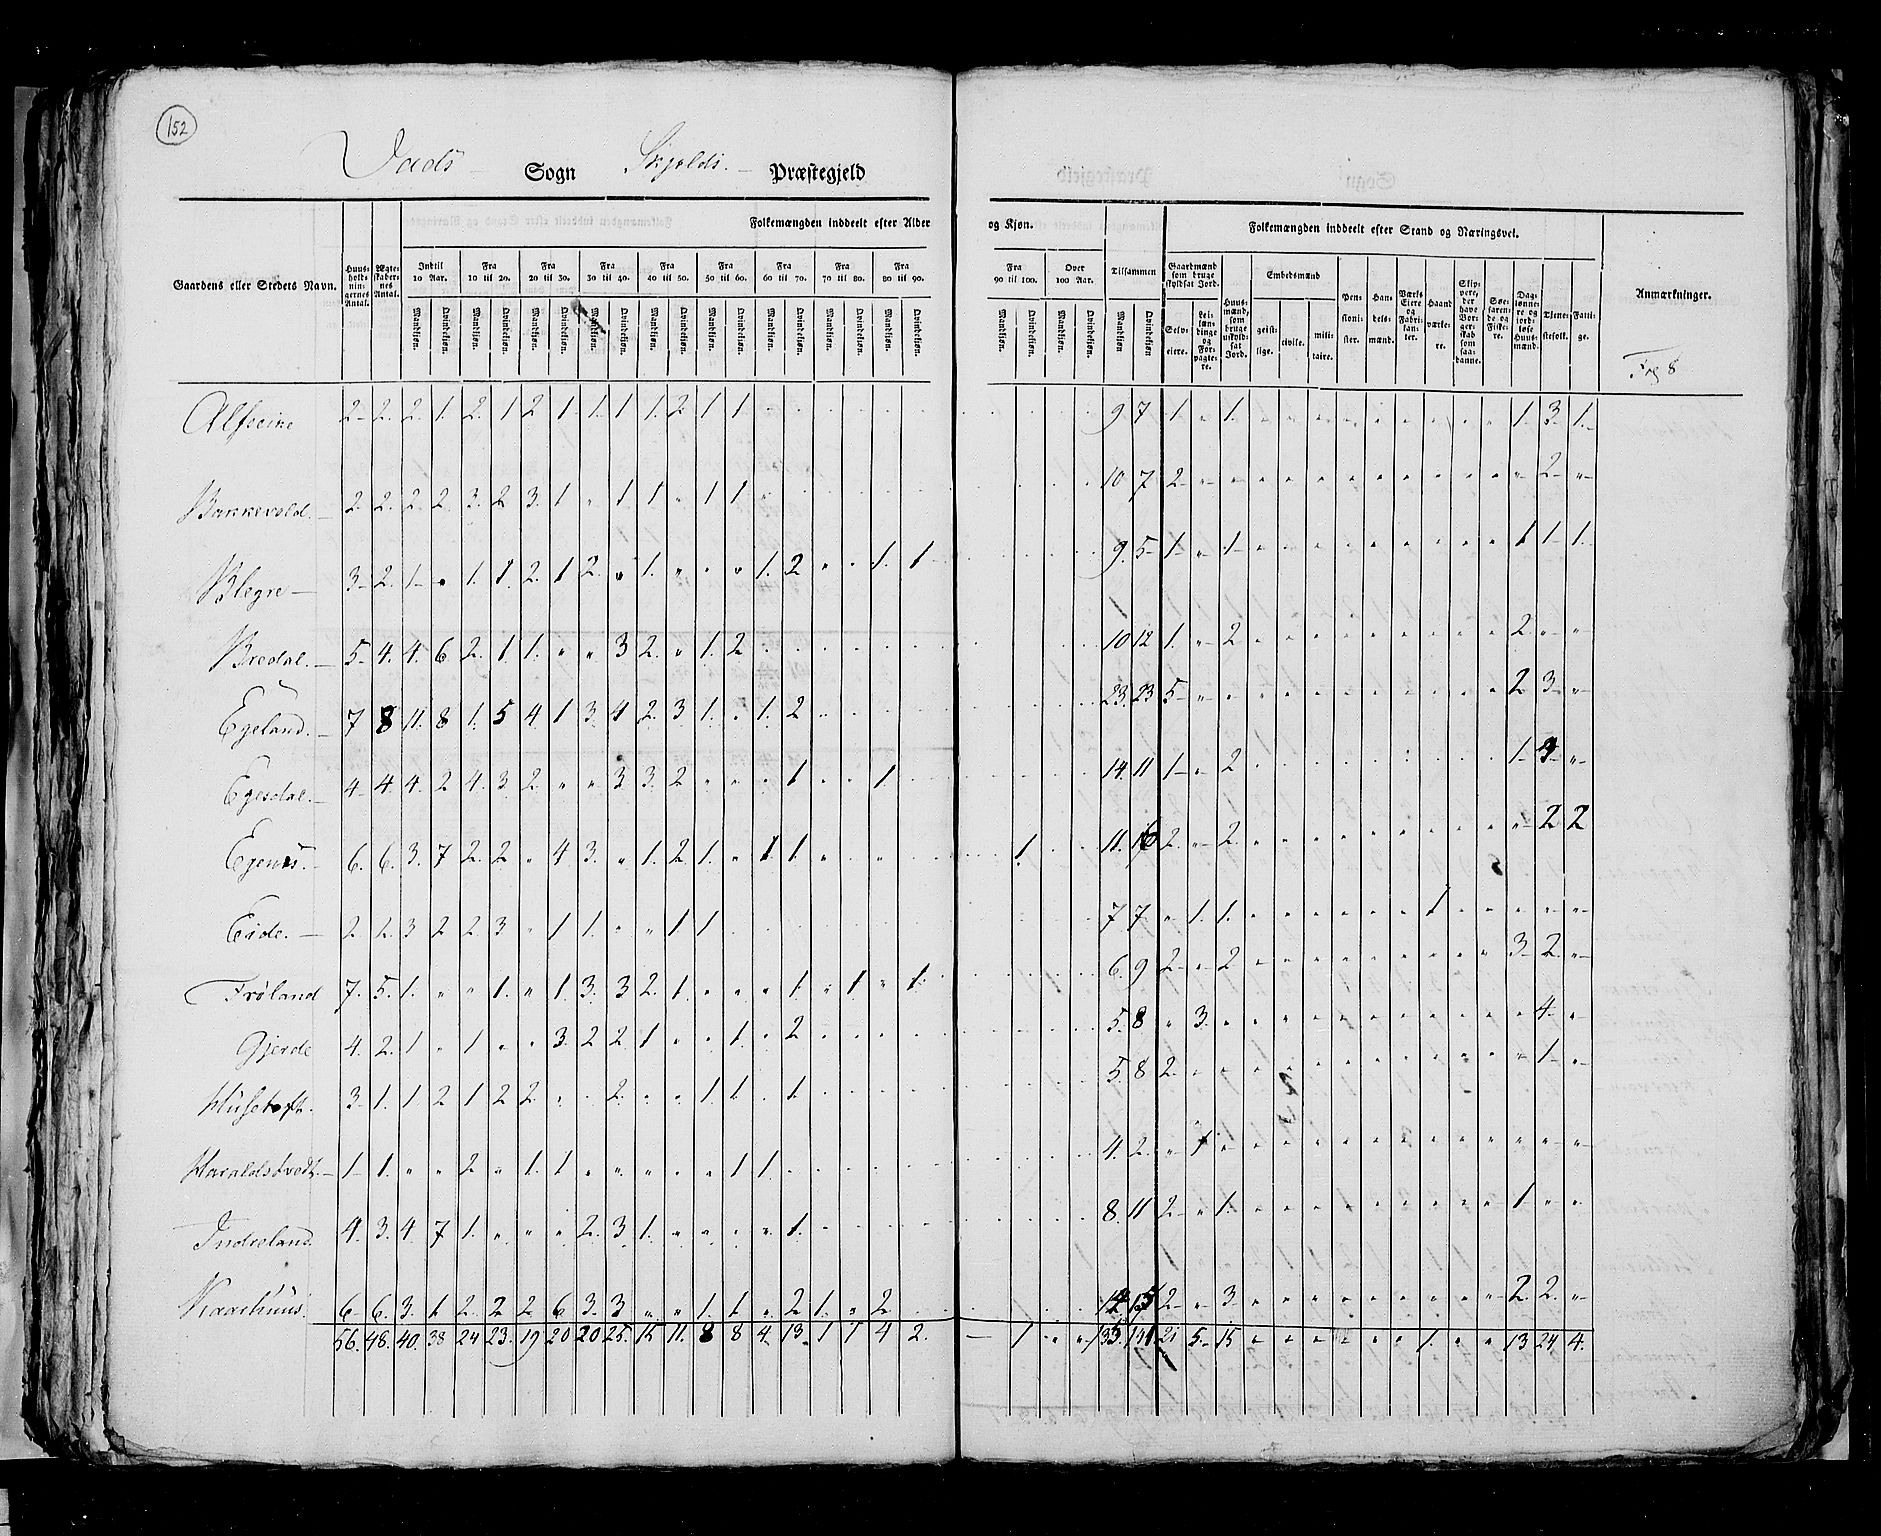 152
Vads Sogn Skjolds Præstegjeld
Gaardens eller Stedets Navn.
Huus-holdnin-gernes Antal.
Ægte-skaber-nes Antal.
Folkemængden inddeelt efter Alder og Kjøn.
Indtil 10 Aar. Fra 10 til 20. Fra 20 til 30. Fra 30 til 40. Fra 40 til 50. Fra 50 til 60. Fra 60 til 70. Fra 70 til 80. Fra 80 til 90. Fra 90 til 100. Over 100 Aar. Tilsammen
Mandkjøn. Qvindekjøn.
Folkemængden inddeelt efter Stand og Næringsvei.
Gaardmænd som bruge skyldsat Jord.
Selv-eiere. Lei-læn-dinge og For-pagte-re.
Huus-mænd, som bruge uskyld-sat Jord.
Embedsmænd
geist-lige. civile. mili-taire.
Pen-sioni-ster.
Han-dels-mænd.
Værks Eiere og Fabri-kan-ter.
Haand værke-re.
Skip-pere, der have Bor-ger-skab som saa-danne.
Søe-farende og Fiske-re.
Dag-lønne-re og jord-løse Huus-mænd.
Tjene-stefolk.
Fatti-ge.
Anmærkninger.
Fog 8
Alfseike 2 2 2 1 2 1 2 1 1 1 1 2 1 1 9 7 1 " 1 1 3 1
Bakkevold 2 2 2 2 3 2 3 1 " 1 1 " 1 1 10 7 2 " " 2 "
Blegre 3 2 1 " 1 1 2 1 2 " 1 " " " 1 2 " " 1 1 9 5 1 " 1 1 1 1
Bredal 5 4 4 6 2 1 1 " " 3 2 " 1 2 10 12 1 " 2 2 " "
Egeland 7 8 11 8 1 5 4 1 3 4 2 3 1 " 1 2 23 23 5 " " 2 3 "
Egesdal 4 4 4 2 4 3 2 " " 3 3 2 " " " 1 " " 1 14 11 1 " 2 1 4 "
Egenæs 6 6 3 7 2 2 " 4 3 " 1 2 1 " 1 1 1 11 16 2 " 2 " 2 2
Eide 2 2 3 2 2 3 " 1 1 " " 1 1 7 7 " 1 1 1 " " "
Frøland 7 5 1 " " 1 " 1 3 3 2 1 " " " 1 " 1 " 1 6 9 2 " 2 3 2 "
Gjerde 4 2 1 " 1 " " 3 2 2 1 " " 1 " 2 5 8 " 3 " 4 "
Husetoft 3 1 1 2 1 2 2 " " 2 " " 1 1 " 1 5 8 2 " 1 "
Haraldstvedt 1 1 " " 2 " 1 1 " " " " " 1 1 4 2 " 1 " " " "
Indreland 4 3 4 7 1 " " " 2 3 1 " " " " 1 8 11 2 " 1 1 " "
Kaarhuus 6 6 3 1 2 2 2 6 3 3 " " 1 1 " 2 1 " 2 14 15 2 " 3 2 2 "
56 48 40 38 24 23 19 20 20 25 15 11 8 8 4 13 1 1 4 2 1 " " 135 141 21 5 15 1 13 24 4